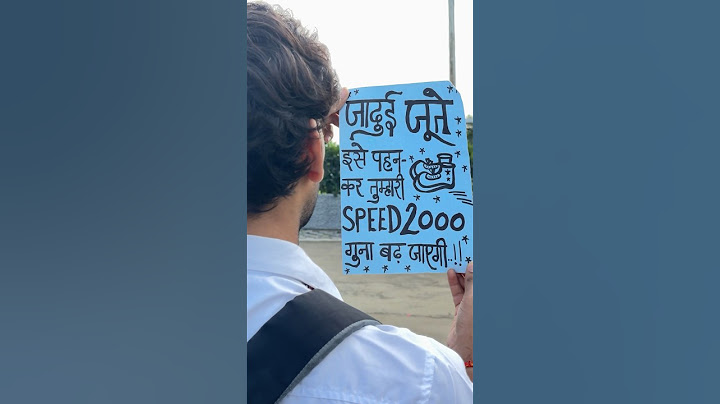 जादुई जूते
इसे पहन-
कर तुम्हारी
SPEED 2000
गुना बढ़ जाएगी..!!